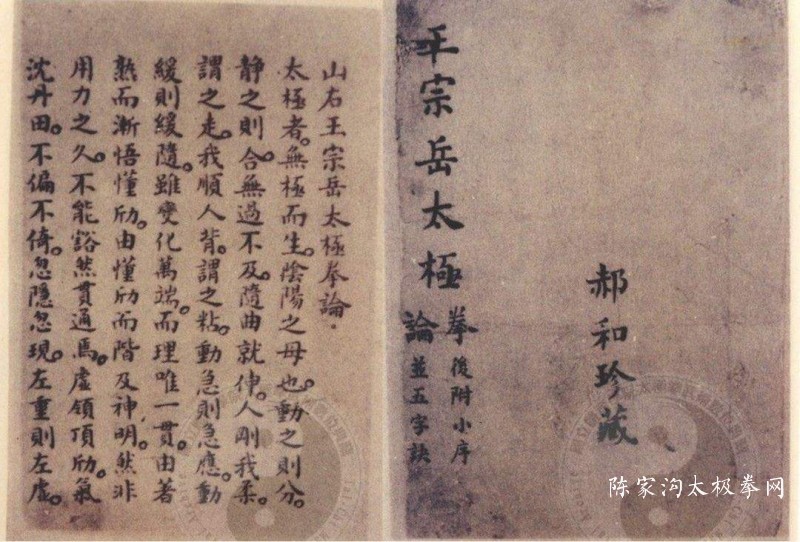 王宗岳太極
拳論
後附小序
並五字訣
郝和珍藏
山右王宗岳太極拳論.
太極者。無極而生。陰陽之母也。動之則分。
靜之則合。無過不及。隨曲就伸。人剛我柔。
謂之走。我順人背。謂之粘。動急則急應。動
緩則緩隨。雖變化萬端。而理唯一貫。由著
熟而漸悟懂劤。由懂劤而階及神明。然非
用力之久。不能豁然貫通焉。虛領頂劤。氣
沈丹田。不偏不倚。忽隱忽現。左重則左虛。
陈家沟太极拳网